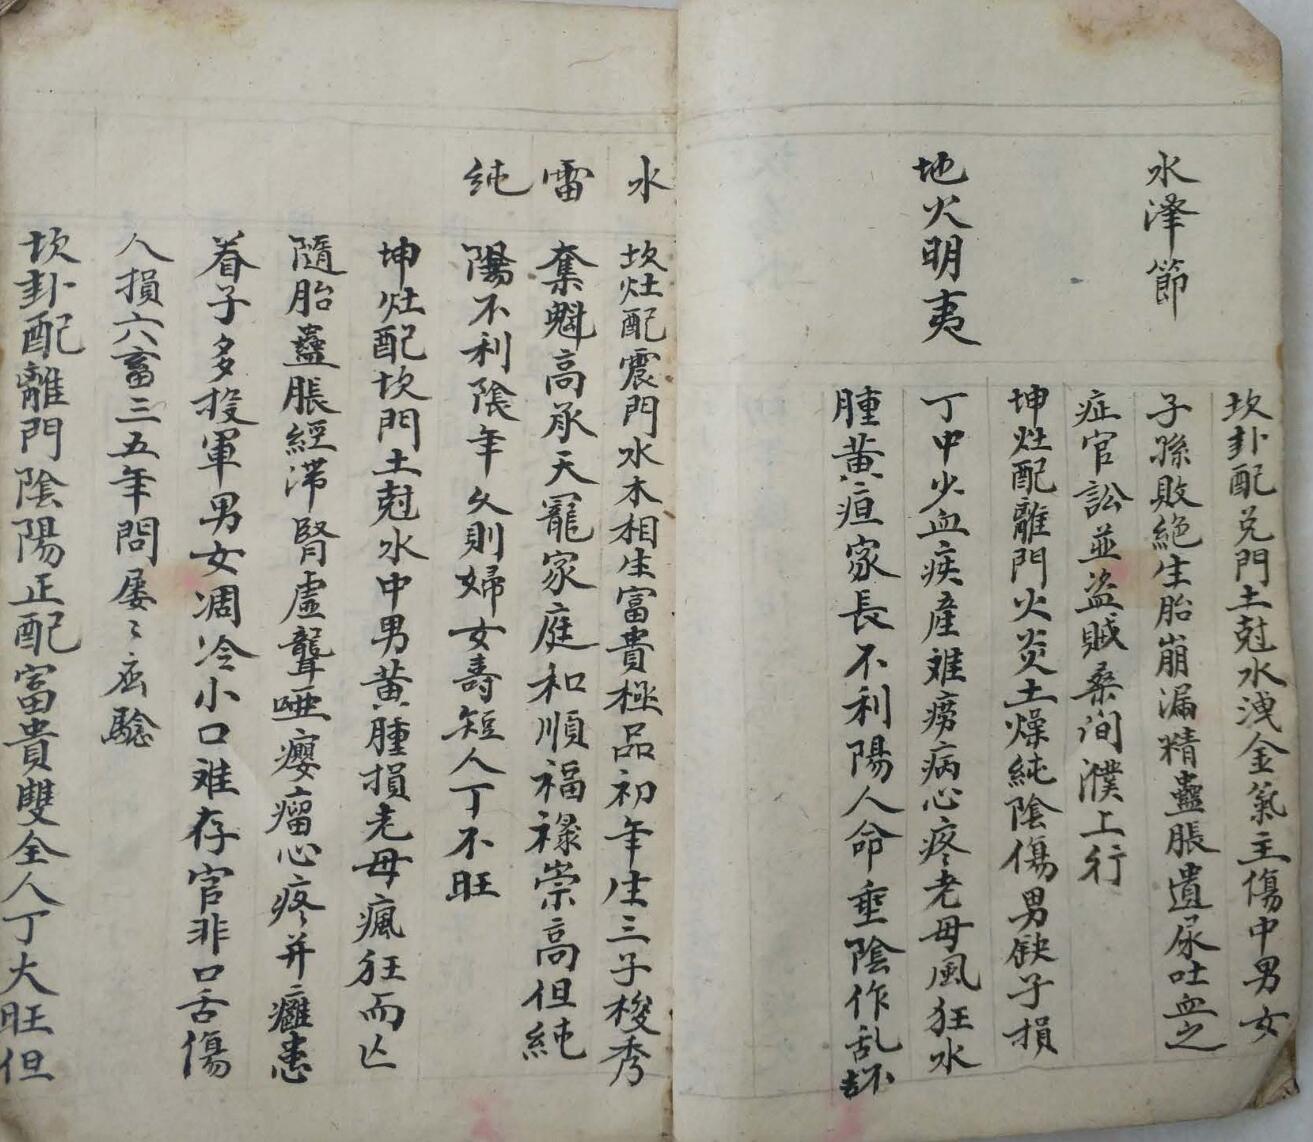 水泽節
坎卦配兑門土尅水洩金氣主傷中男女
子孫敗絕生胎崩漏精蠱脹遺尿吐血之
症官訟並盗賊桑间濮上行
地火明夷
坤灶配離門火炎土燥純陰傷男缺子損
丁中少血疾產难痨病心疼老母風狂水
腫黄疸家長不利陽人命重陰作乱
水
雷
純
坎灶配震門水木相生富貴極品初年生三子梭秀
奪魁高承天寵家庭和順福禄崇高但純
陽不利陰年久則婦女壽短人丁不旺
坤灶配坎門土尅水中男黄腫損老母瘋狂而亡
隨胎蠱脹經滞腎虛聾啞癭瘤心疼并癰患
眷子多投軍男女凋冷小口难存官非口舌傷
人損六畜三五年間屡〻应驗
坎卦配離門陰陽正配富貴雙全人丁大旺但